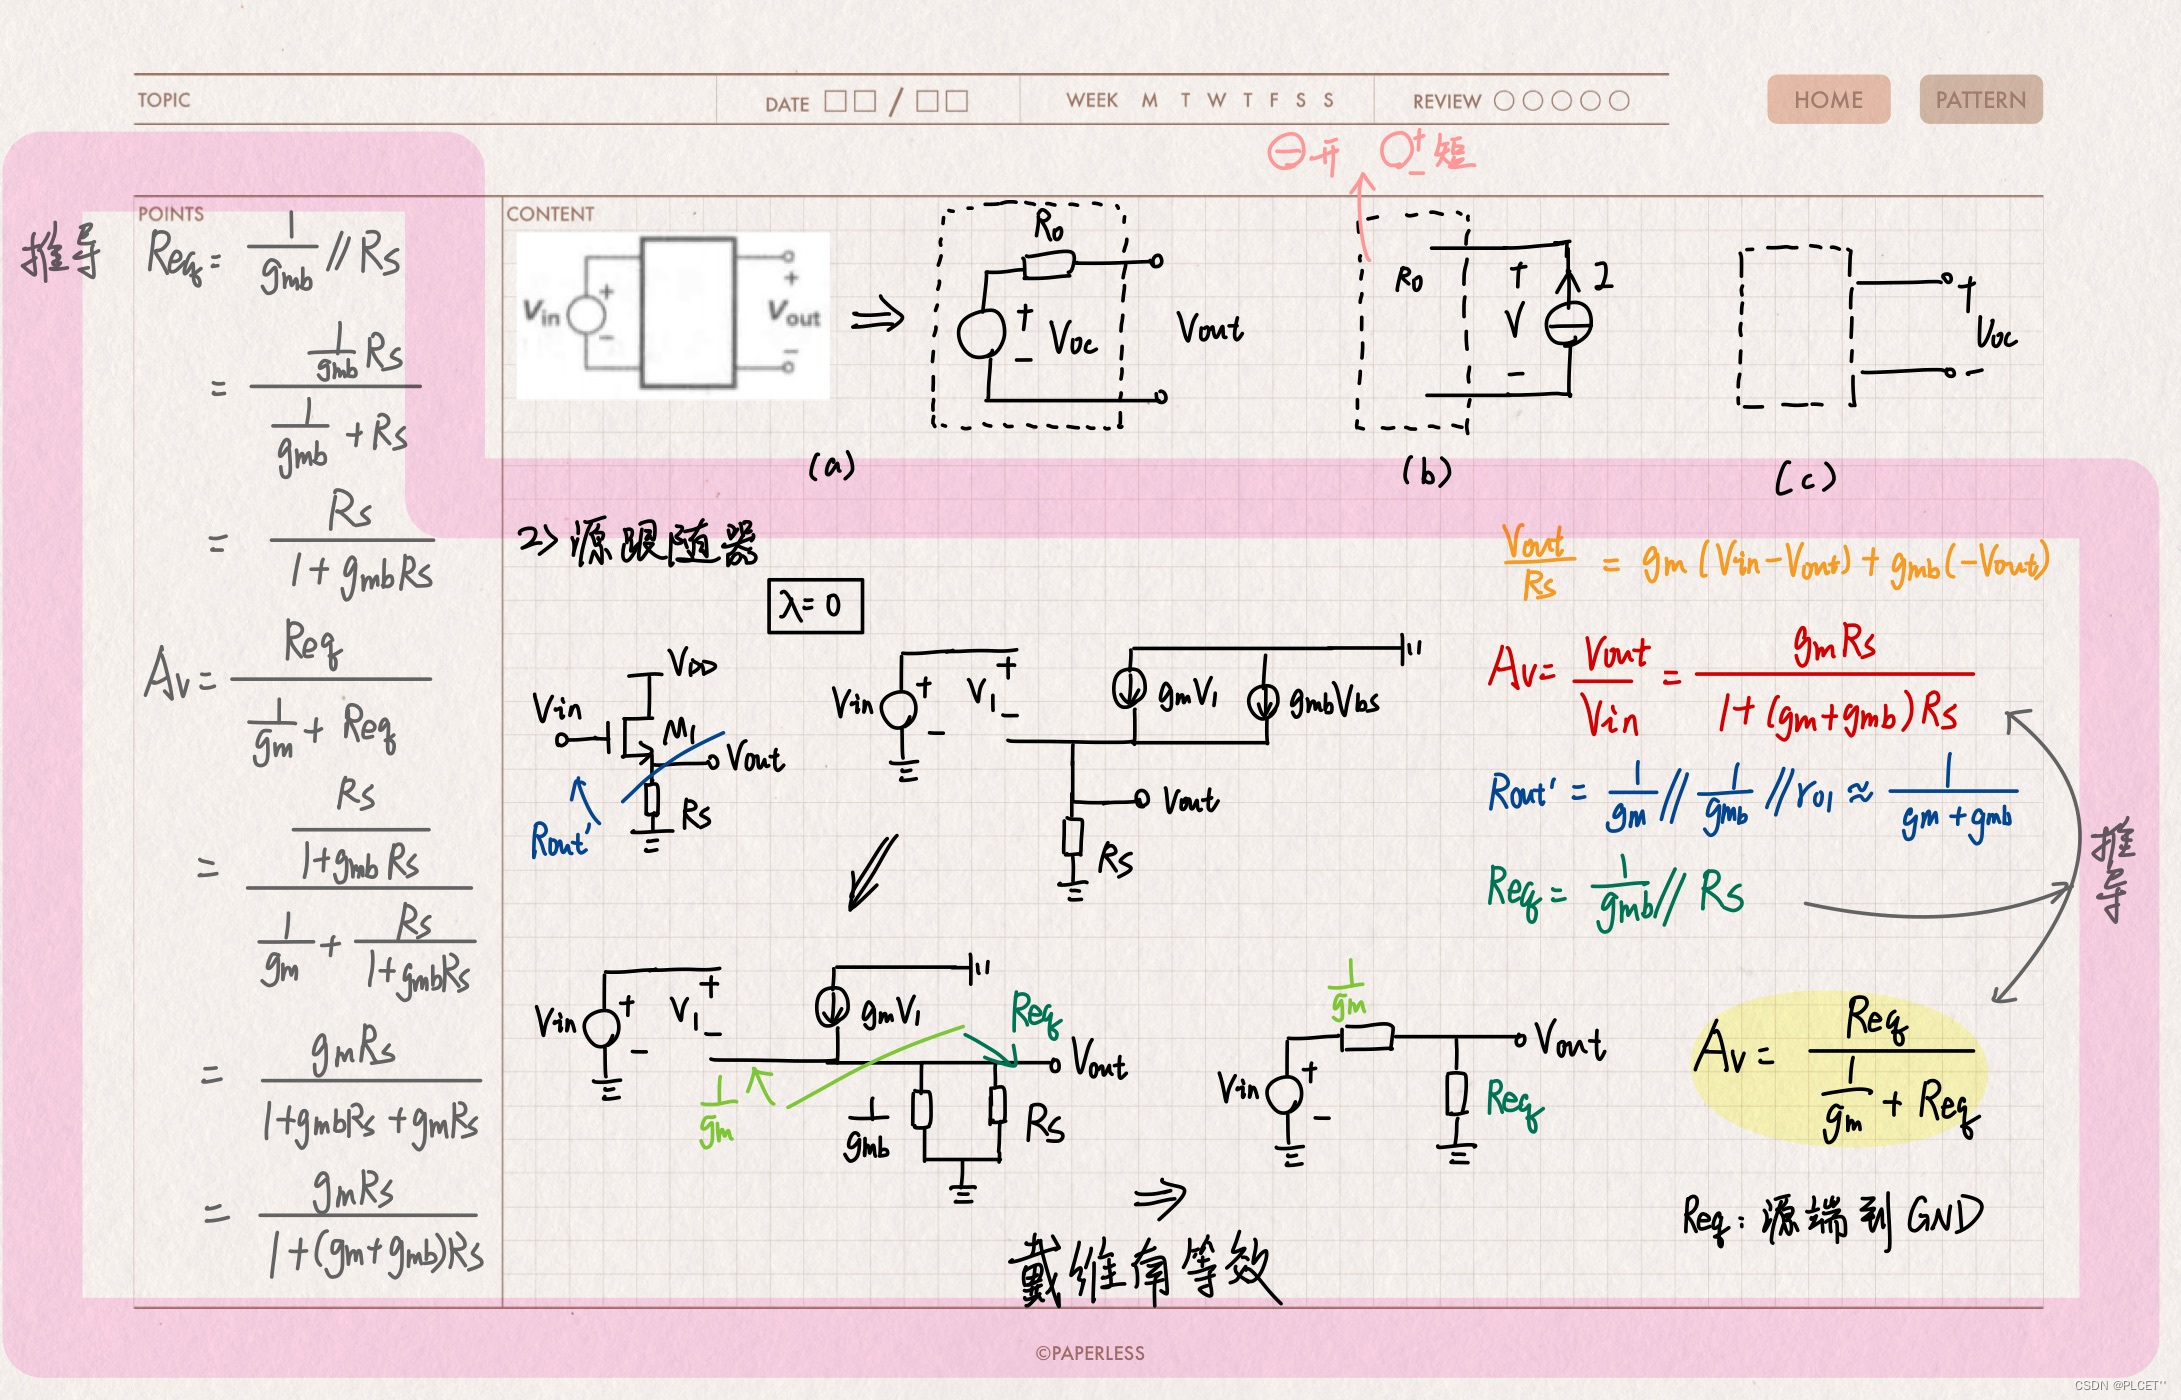 TOPIC
DATE □□ / □□
WEEK M T W T F S S
REVIEW ○○○○○
HOME
PATTERN
POINTS
推导
Req = 1/gmb // Rs
= (1/gmb Rs)/(1/gmb + Rs)
= Rs/(1 + gmbRs)
Av = Req/(1/gm + Req)
= (Rs/(1+gmbRs))/(1/gm + Rs/(1+gmbRs))
= gmRs/(1+gmbRs + gmRs)
= gmRs/(1+(gm+gmb)Rs)
CONTENT
Vin + −
+ Vout −
⇒
Ro
+ Voc −
Vout
(a)
⊖开 ○+− 短
Ro
+ V −
I
(b)
+ Voc −
(c)
2> 源跟随器
λ= 0
VDD
Vin
M1
Vout
Rs
Rout'
Vin + −
+ V1 −
gmV1
gmbVbs
Vout
Rs
Vout/Rs = gm(Vin-Vout)+gmb(-Vout)
Av= Vout/Vin = gmRs/(1+(gm+gmb)Rs)
Rout' = 1/gm // 1/gmb // ro1 ≈ 1/(gm+gmb)
Req= 1/gmb // Rs
推导
Vin + −
+ V1 −
gmV1
Req
Vout
1/gm
1/gmb
Rs
⇒
戴维南等效
1/gm
Vin + −
Vout
Req
Av= Req/(1/gm + Req)
Req: 源端到GND
©PAPERLESS
CSDN @PLCET''